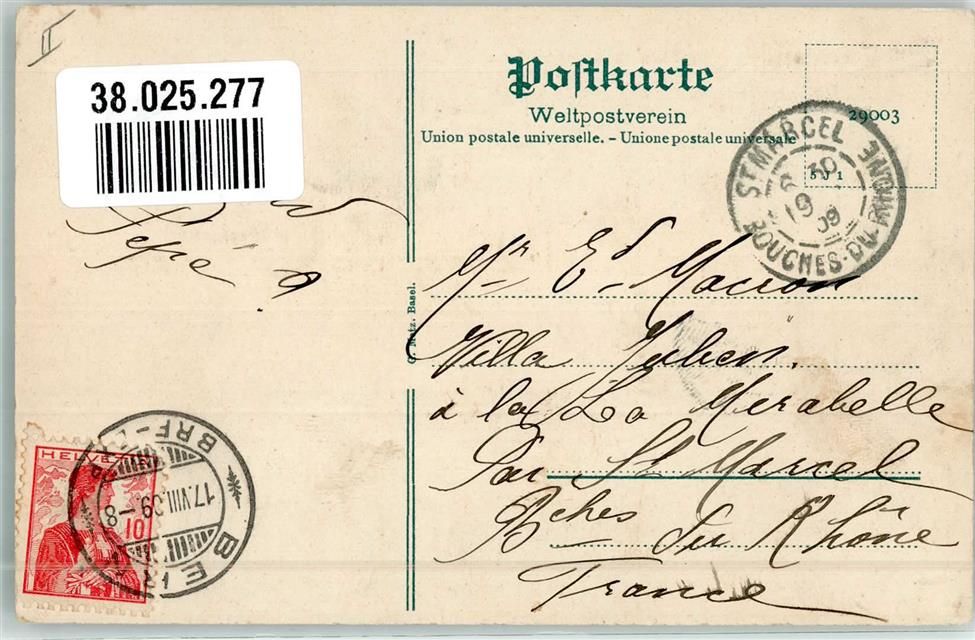 II
38.025.277
Postkarte
Weltpostverein
Union postale universelle. – Unione postale universale
29003
ST MARCEL
19
09
BOUCHES-DU-RHONE
Pépé
C. Metz. Basel.
Mr Ed Macron
Villa
à la La Mirabelle
Par St Marcel
Bches du Rhône
France
HELVETIA
10
BERN
BRF-
17.VIII.09.-8